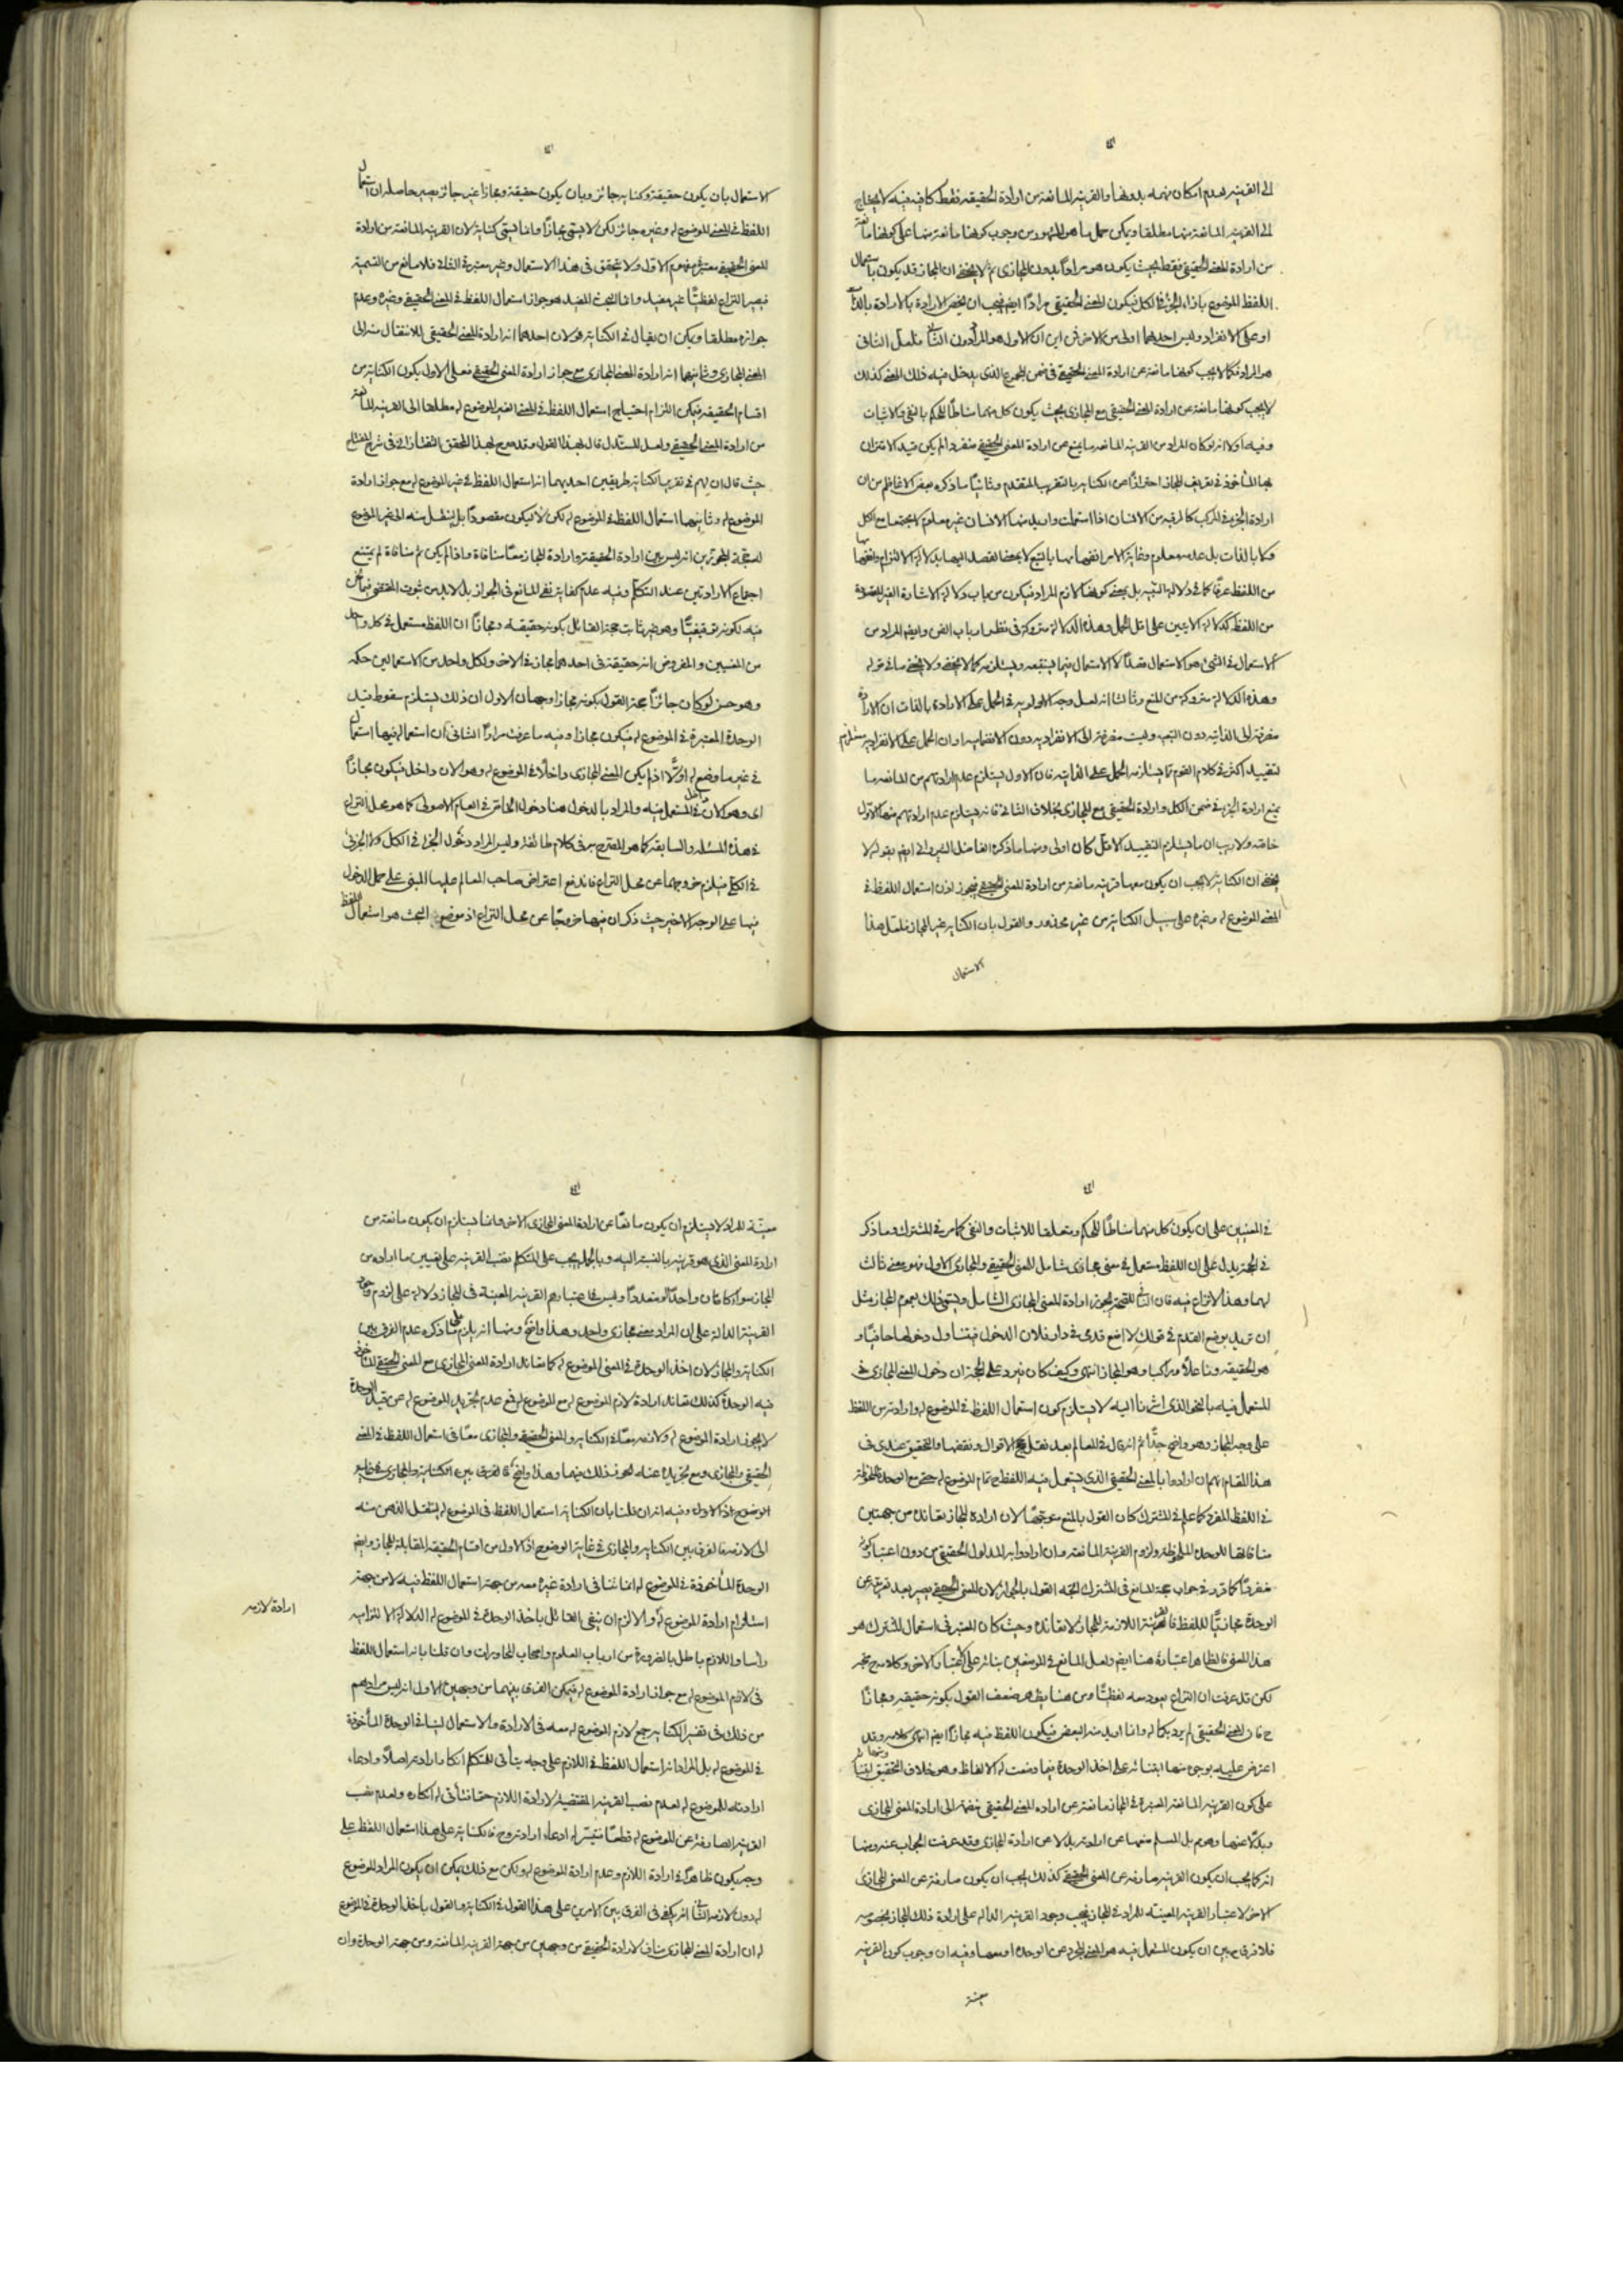 الى القرينه لعدم امكان فهمه بدونها والقرينه المانعة من ارادة الحقيقه فقط كافيه فيه لا يحتاج
الى القرينه المانعة منها مطلقا ويمكن حمل ما هو المشهور من وجوب كونها مانعة منها على كونها مانعة
من ارادة المعنى الحقيقى فقط بحيث يكون هو مرادا بدون المجازى ثم لا يخفى ان المجاز قد يكون باستعمال
اللفظ الموضوع بازاء الجزء فى الكل فيكون المعنى الحقيقى مرادا ايضا فيجب ان يخص الارادة بالارادة بالذات
او على الانفراد وليس احدهما اولى من الاخر فمن اين ان الاول هو المراد دون الثانى فلعل الثانى
هو المراد فكما لا يجب كونها مانعة عن ارادة المعنى الحقيقى فى ضمن المجموع الذى يدخل فيه ذلك المعنى كذلك
لا يجب كونها مانعة عن ارادة المعنى الحقيقى مع المجازى بحيث يكون كل منهما مناطا للحكم بالنفى والاثبات
وفيه اولا انه لو كان المراد من القرينه المانعه ما يمنع من ارادة المعنى الحقيقى منفردا لم يكن قيد الاقتران
بها المأخوذ فى تعريف المجاز احترازا عن الكناية بالتقريب المتقدم وثانيا ما ذكره بعض الافاظم من ان
ارادة الجزء فى المركب كالرقبه من الانسان اذا استعملت واريد منها الانسان غير معلوم
من اللفظ عرفا كما فى دلالة التنبيه بل بمعنى كونها لازم المراد فيكون من باب دلالة الاشارة الغير المقصودة
من اللفظ كدلالة الايتين على اقل الحمل وهذه الدلالة متروكة فى نظر ارباب الفن وايضا المراد من
الاستعمال فى الشئ هو الاستعمال قصدا لا الاستعمال فيما يتبعه ويستلزمه كما لا يخفى ولا يخفى ما فى قوله
وهذه الدلالة متروكة من المنع وثالثا انه لعل وجه الاولويه فى الحمل على الارادة بالذات ان الارادة
منصرفة الى الذاتيه دون التبعيه وليست منصرفة الى الانفراديه دون الانضماميه او ان الحمل على الانفراديه مستلزم
لتقييد اكثر فى كلام القوم مما يستلزمه الحمل على الذاتيه فان الاول يستلزم عدم ارادتهم من المانعه ما
يمنع ارادة الجزء فى ضمن الكل وارادة الحقيقى مع المجازى بخلاف الثانى فانه يستلزم عدم ارادتهم منها الاول
خاصه ولا ريب ان ما يستلزم التقييد الاقل كان اولى ومنها ما ذكره الفاضل الشيروانى ايضا بقوله لا
يخفى ان الكناية لا يجب ان يكون معها قرينه مانعة من ارادة المعنى الحقيقى فيجوز اذن استعمال اللفظ فى
المعنى الموضوع له وغيره على سبيل الكناية من غير محذور والقول بان الكناية غير المجاز فلعل هذا
الاستعمال
الاستعمال بان يكون حقيقة وكناية جائز وبان يكون حقيقة ومجازا غير جائز يصير حاصله ان استعمال
اللفظ فى المعنى الموضوع له وغيره جائز لكن لا يسمى مجازا وانما يسمى كناية لان القرينه المانعة من ارادة
المعنى الحقيقى معتبرة فى مفهوم الاول ولا يتحقق فى هذا الاستعمال وغير معتبرة فى الثانى فلا مانع من التسمية
فيصير النزاع لفظيا غير مفيد وانما البحث المفيد هو جواز استعمال اللفظ فى المعنى الحقيقى وغيره وعدم
جوازه مطلقا ويمكن ان يقال فى الكناية قولان احدهما انه ارادة المعنى الحقيقى للانتقال منه الى
المعنى المجازى وثانيهما انه ارادة المعنى المجازى مع جواز ارادة المعنى الحقيقى فعلى الاول يكون الكناية من
اقسام الحقيقه فيمكن التزام احتياج استعمال اللفظ فى المعنى الغير الموضوع له مطلقا الى القرينه المانعة
من ارادة المعنى الحقيقى ولعل المستدل قال بهذا القول وقد صرح بهذا المحقق التفتازانى فى شرح المفتاح
حيث قال ان لهم فى تعريف الكناية طريقين احديهما انه استعمال اللفظ فى غير الموضوع له مع جواز ارادة
الموضوع له وثانيهما استعمال اللفظ فى الموضوع له لكن لا ليكون مقصودا بل لينتقل منه الى غير الموضوع
له حجة المجوزين انه ليس بين ارادة الحقيقة وارادة المجاز معا منافاة واذا لم يكن ثم منافاة لم يمتنع
اجتماع الارادتين عند التكلم وفيه عدم كفاية نفى المانع فى الجواز بل لا بد من ثبوت المقتضى فيما نحن
فيه لكونه توقيفيا وهو غير ثابت حجة القائل بكونه حقيقه ومجازا ان اللفظ مستعمل فى كل واحد
من المعنيين والمفروض انه حقيقة فى احدهما مجاز فى الاخر ولكل واحد من الاستعمالين حكمه
وهو حسن لو كان جائزا حجة القول بكونه مجازا وجهان الاول ان ذلك يستلزم سقوط قيد
الوحدة المعتبرة فى الموضوع له فيكون مجازا وفيه ما عرفت مرارا الثانى ان استعماله فيهما استعمال
فى غير ما وضع له اولا اذ لم يكن المعنى المجازى داخلا فى الموضوع له وهو الان داخل فيكون مجازا
اى وهو الان داخل فى المستعمل فيه والمراد بالدخول هنا دخول الخاص فى العام الاصولى كما هو محل النزاع
فى هذه المسئله والسابقه كما هو المصرح به فى كلام طائفة وليس المراد دخول الجزء فى الكل ولا الجزئى
فى الكلى فيلزم خروجهما عن محل النزاع فاندفع اعتراض صاحب المعالم عليها المبنى على حمل الدخول
فيها على الوجه الاخير حيث ذكر ان فيها خروجا عن محل النزاع اذ موضوع البحث هو استعمال اللفظ
فى المعنيين على ان يكون كل منهما مناطا للحكم ومتعلقا للاثبات والنفى كما مر فى المشترك وما ذكر
فى الحجة يدل على ان اللفظ مستعمل فى معنى مجازى شامل للمعنى الحقيقى والمجازى الاول فهو معنى ثالث
لهما وهذا لا نزاع فيه فان النافى للصحة يجوز ارادة المعنى المجازى الشامل ويسمى ذلك بعموم المجاز مثل
ان تريد بوضع القدم فى قولك لا اضع قدمى فى دار فلان الدخول فيتناول دخولها حافيا و
هو الحقيقه وناعلا وراكبا وهو المجاز انتهى وكيف كان فيرد على الحجة ان دخول المعنى المجازى فى
المستعمل فيه بالنحو الذى اشرنا اليه لا يستلزم كون استعمال اللفظ فى الموضوع له وارادته من اللفظ
على وجه المجاز وهو واضح جدا ثم انه قال فى المعالم بعد نقل حجج الاقوال ونقضها والتحقيق عندى فى
هذا المقام انهم ان ارادوا بالمعنى الحقيقى الذى يستعمل فيه اللفظ ح تمام الموضوع له حتى مع الوحدة الملحوظة
فى اللفظ المفرد كما علم فى المشترك كان القول بالمنع متوجها لان ارادة المجاز تعانده من جهتين
منافاتها للوحدة الملحوظة ولزوم القرينة المانعة وان ارادوا به المدلول الحقيقى من دون اعتبار كونه
منفردا كما قرر فى جواب حجة المانع فى المشترك اتجه القول بالجواز لان المعنى الحقيقى يصير بعد تعريته عن
الوحدة مجازيا للفظ فالقرينة اللازمة للمجاز لا تعانده وحيث كان المعتبر فى استعمال المشترك هو
هذا المعنى فالظاهر اعتباره هنا ايضا ولعل المانع فى الموضعين بناؤه على الاعتبار الاخر وكلامه ح متجه
لكن قد عرفت ان النزاع يعود معه لفظيا ومن هنا يظهر ضعف القول بكونه حقيقه ومجازا
ح فان المعنى الحقيقى لم يرد بكماله وانما اريد منه البعض فيكون اللفظ فيه مجازا ايضا انتهى كلامه وقد
اعترض عليه بوجوه منها ابتنائه على اخذ الوحدة فيما وضعت له الالفاظ وهو خلاف التحقيق ومنها ابتنائه
على كون القرينه المانعه المعتبرة فى المجاز مانعة عن ارادة المعنى الحقيقى منضما الى ارادة المعنى المجازى
وبدلا عنها وهو م بل المسلم منعها عن ارادته بدلا عن ارادة المجازى وقد عرفت الجواب عنه ومنها
انه كما يجب ان يكون القرينه صارفه عن المعنى الحقيقى كذلك يجب ان يكون صارفة عن المعنى المجازى
الاخر لاعتبار القرينه المعينه للمراد فى المجاز فيجب وجود القرينه الداله على ارادة ذلك المجاز بخصوصه
فلا فرق ح بين ان يكون المستعمل فيه هو المعنى المجرد عن الوحدة او معها وفيه ان وجوب كون القرينه
معينة
معينة للمراد لا يستلزم ان يكون مانعا عن ارادة المعنى المجازى الاخر وانما يستلزم ان يكون مانعة من
ارادة المعنى الذى هو قرينه بالنسبة اليه وبالجمله يجب على المتكلم نصب القرينه على تعيين ما اراده من
المجاز سواء كان واحدا او متعددا وليس فى اعتبارهم القرينة المعينة فى المجاز دلاله على لزوم وجود
القرينة الدالة على ان المراد معنى مجازى واحد وهذا واضح ومنها انه يلزم على ما ذكره عدم الفرق بين
الكناية والمجاز لان اخذ الوحدة فى المعنى الموضوع له كما تعاند ارادة المعنى المجازى مع المعنى الحقيقى المأخوذ
فيه الوحدة كذلك تعاند ارادة لازم الموضوع له مع الموضوع له فمع عدم تجريد الموضوع له عن قيد الوحدة
لا يجوز ارادة الموضوع له ولازمه معا فى الكناية والمعنى الحقيقى والمجازى معا فى استعمال اللفظ فى المعنى
الحقيقى والمجازى ومع تجريده عنه يجوز ذلك فيهما وهذا واضح فالفرق بين الكناية والمجازى فى غاية
الوضوح اذ الاول وفيه انه ان قلنا بان الكناية استعمال اللفظ فى الموضوع له لينتقل الذهن منه
الى لازمه فالفرق بين الكناية والمجازى فى غاية الوضوح اذ الاول من اقسام الحقيقه المقابلة للمجاز وايضا
الوحدة المأخوذة فى الموضوع له انما تنافى ارادة غيره معه من جهة استعمال اللفظ فيه لا من جهة
استلزام ارادة الموضوع له والا لزم ان ينفى القائل باخذ الوحدة فى الموضوع له الدلالة الالتزاميه
ارادة لازمه
رأسا واللازم باطل بالضرورة من ارباب العلوم واصحاب المحاورات وان قلنا بانه استعمال اللفظ
فى لازم الموضوع له مع جواز ارادة الموضوع له فيمكن الفرق بينهما من وجهين الاول انه ليس مرادهم
من ذلك فى تفسير الكناية جمع لازم الموضوع له معه فى الارادة والاستعمال لينافى الوحدة المأخوذة
فى الموضوع له بل المراد انه استعمال اللفظ فى اللازم على وجه يتأتى للمتكلم انكار ارادته اصلا وادعاء
ارادته للموضوع له لعدم نصب القرينه المقتضية لارادة اللازم حتما فتأتى له انكاره ولعدم نصب
القرينه الصارفة عن الموضوع له قطعا فتيسر له ادعاء ارادته وح فالكناية على هذا استعمال اللفظ على
وجه يكون ظاهرا فى ارادة اللازم وعدم ارادة الموضوع له ولكن مع ذلك يمكن ان يكون المراد الموضوع
له دون لازمه الثانى انه يكفى فى الفرق بين الامرين على هذا القول فى الكناية والقول باخذ الوحدة فى الموضوع
له ان ارادة المعنى المجازى مناف لارادة الحقيقى من وجهين من جهة القرينه المانعة ومن جهة الوحدة وان